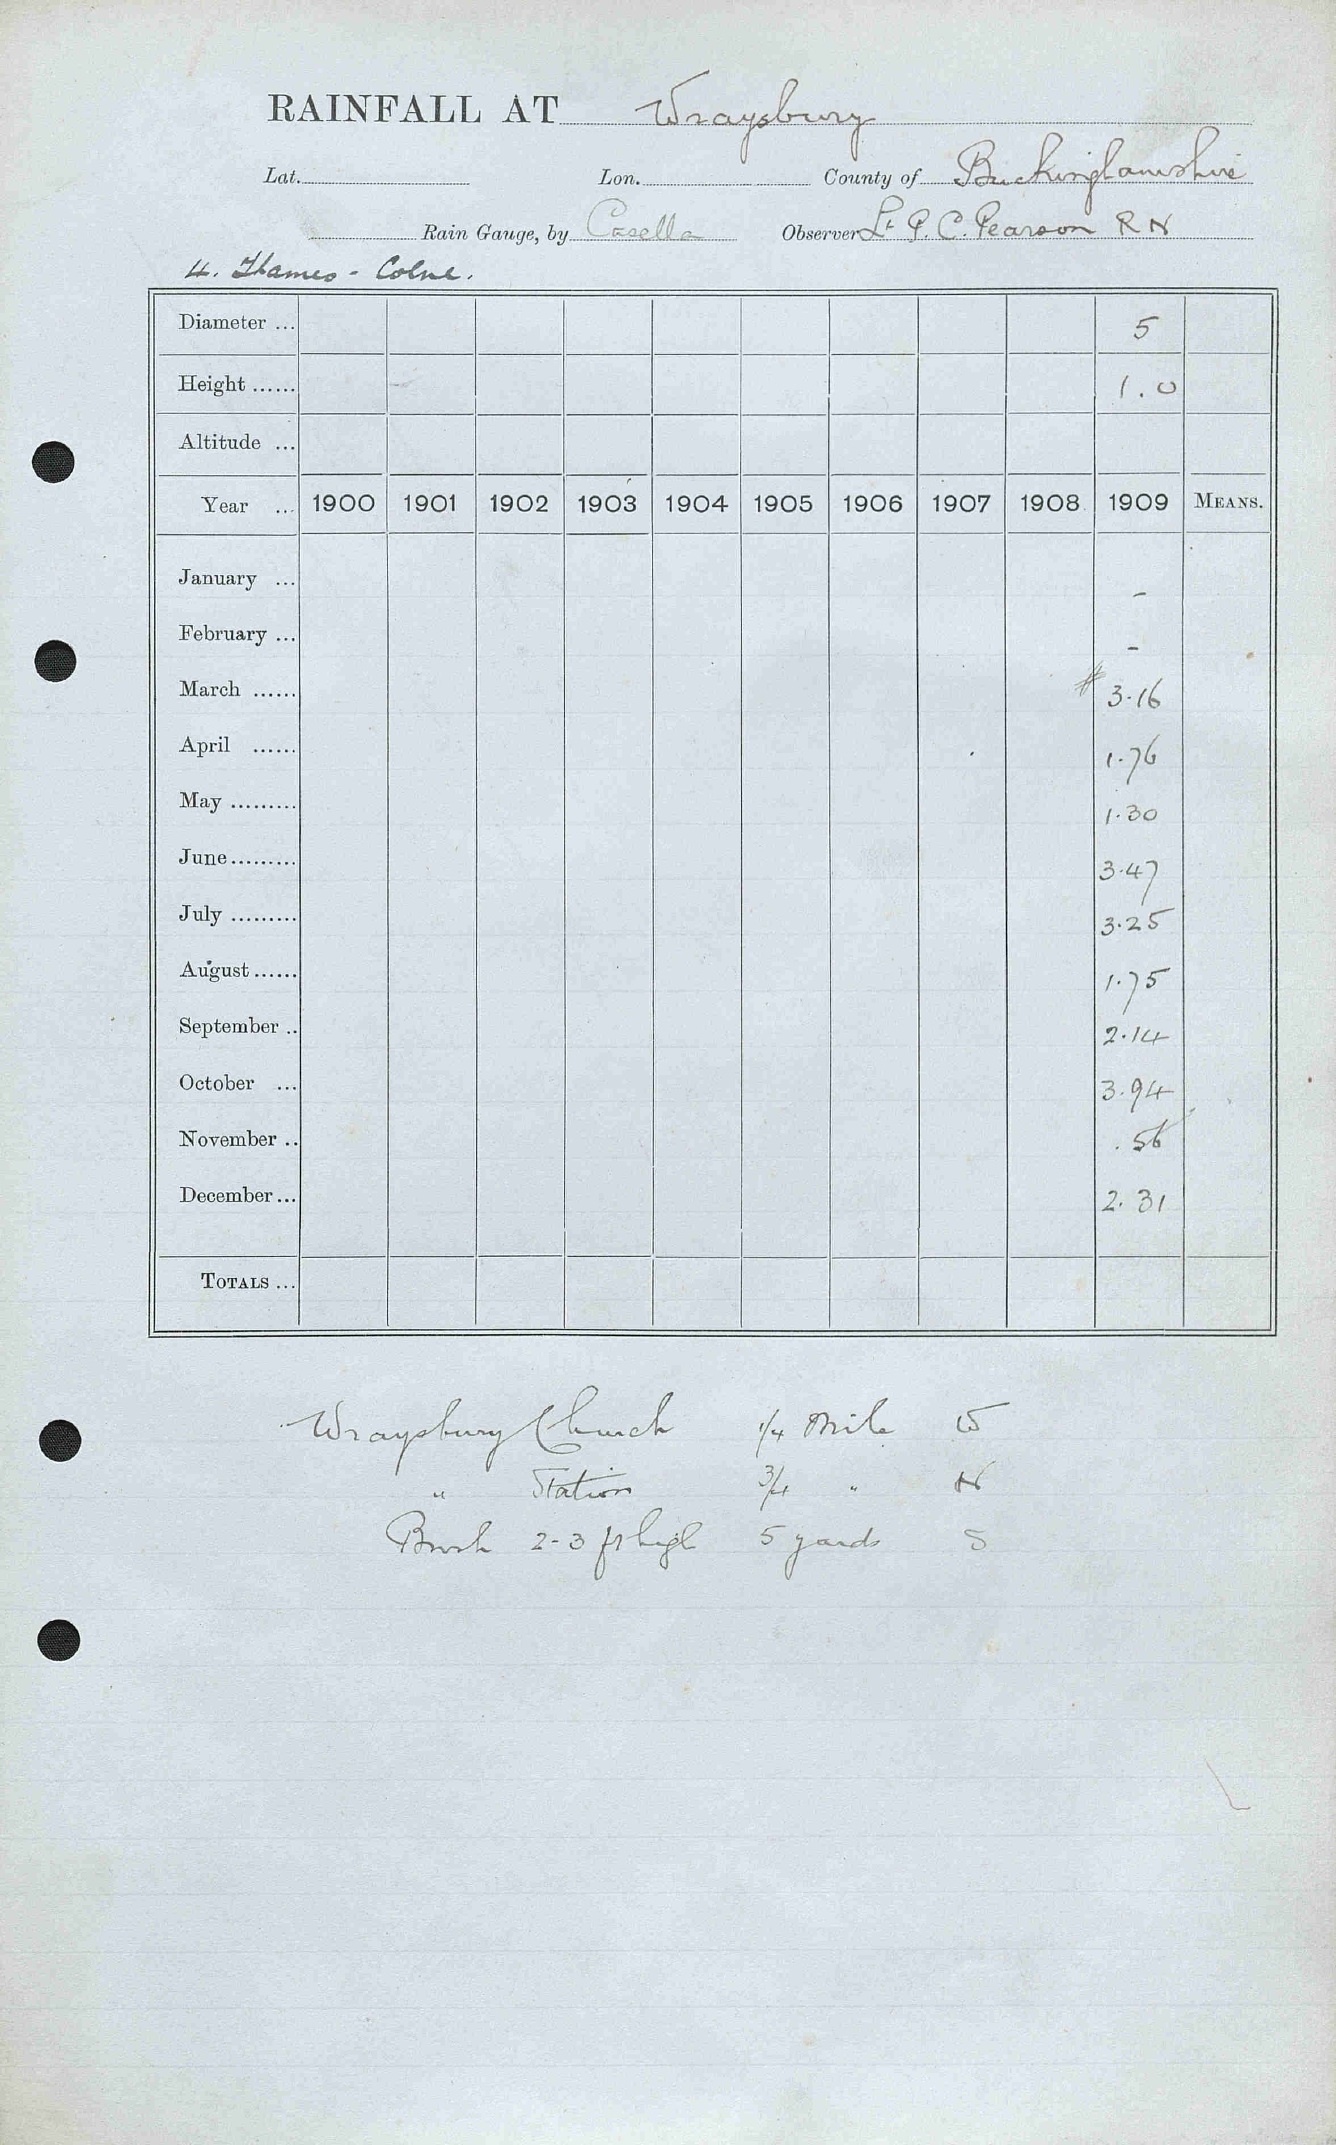 RAINFALL AT Wraysbury
Lat. Lon. County of Buckinghamshire
Rain Gauge, by Casella Observer Lt P. C. Pearson R N
4. Thames - Colne.
Diameter ... 5
Height ...... 1.0
Altitude ...
Year ... 1900 1901 1902 1903 1904 1905 1906 1907 1908 1909 MEANS.
January ... -
February ... -
March ...... # 3.16
April ...... 1.76
May ......... 1.30
June ......... 3.47
July ......... 3.25
August ...... 1.75
September .. 2.14
October ... 3.94
November .. .56
December ... 2.31
TOTALS ...
Wraysbury Church 1/4 Mile W
" Station 3/4 " N
Bush 2-3 ft high 5 yards S